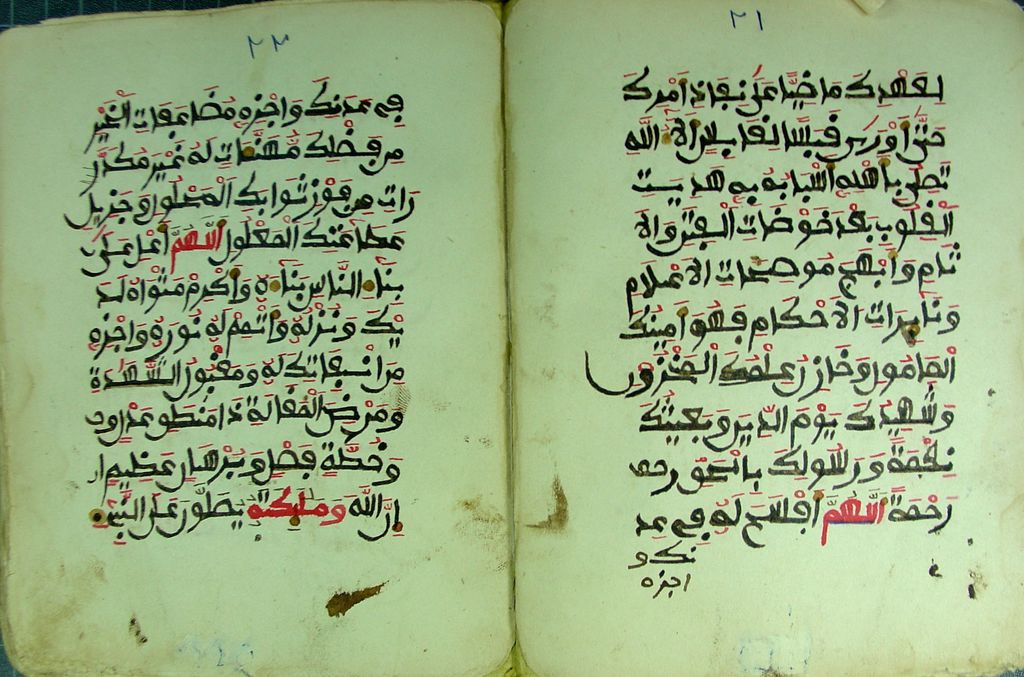 ٢١
لعهدك ماضيا على نفاذ امرك
حتى اورى قبسا لقابس الاء الله
تصل باهله اسبابه به هديت
القلوب بعد خوضات الفتن والا
ثام وابهج موضحات الاعلام
ونايرات الاحكام فهو امينك
المامون وخازن علمك المخزون
وشهيدك يوم الدين وبعيثك
نعمة ورسولك بالحق
رحمة اللهم افسح له في عد
نك و
اجزه
في عدنك واجزه مضاعفات الخير
من فضلك مهنئات له غير مكدر
رات من فوز ثوابك وجزيل
المعلول اللهم اعل على
بناء الناس بناءه واكرم مثواه لد
يك ونزله واتمم له نوره واجزه
من له ومقبول الشهدة
المقالة ذا منطق
وخطة فصل وبرهان عظيم
ان الله وملئكته يصلون على النبي